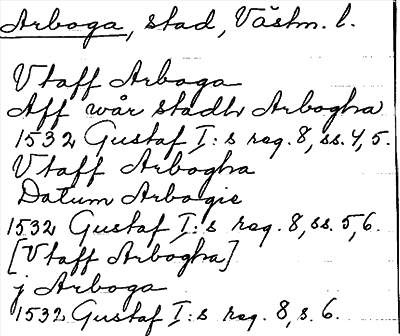 Arboga, stad, Västm. l.
Vtaff Arboga
Aff wår stadh Arbogha
1532 Gustaf I:s reg. 8, ss. 4, 5.
Vtaff Arbogha
Datum Arbogie
1532 Gustaf I:s reg. 8, ss. 5, 6.
[Vtaff Arbogha]
j Arboga
1532 Gustaf I:s reg. 8, s. 6.